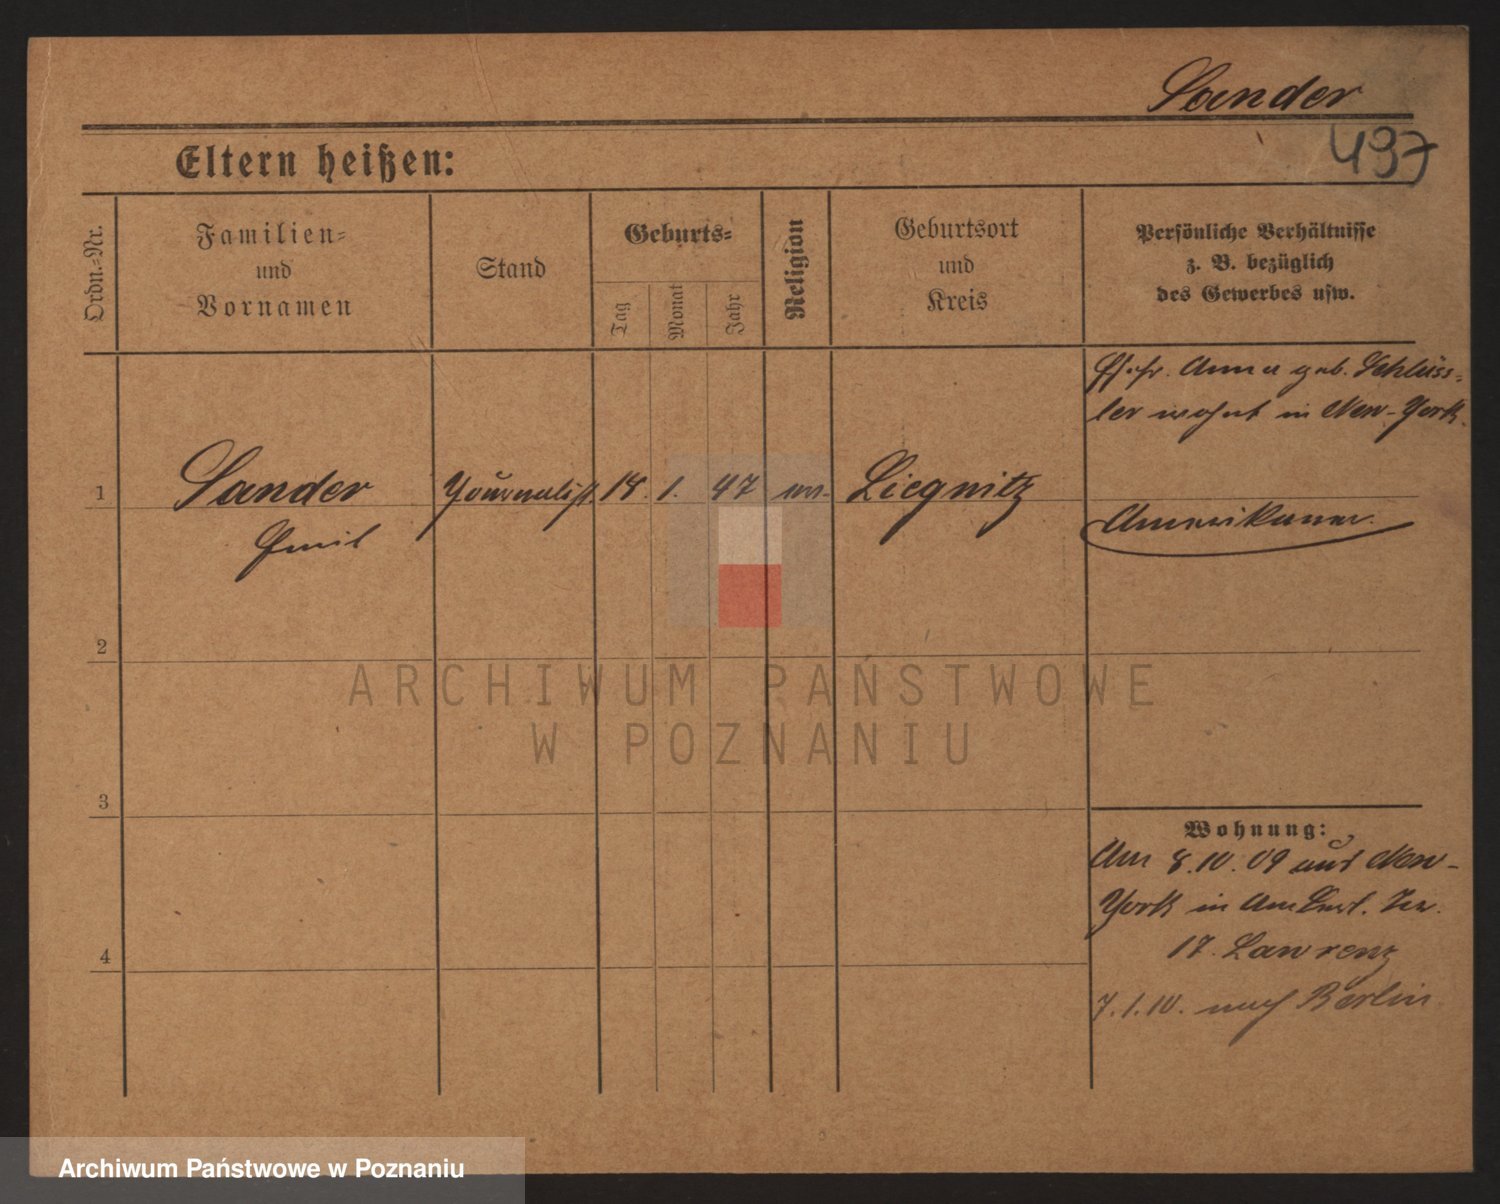 Sander
497
Eltern heißen:
Ordn.-Nr.
Familien-
und
Vornamen
Stand
Geburts-
Tag
Monat
Jahr
Religion
Geburtsort
und
Kreis
Persönliche Verhältnisse
z. B. bezüglich
des Gewerbes usw.
Ehefr. Anna geb. Schlüss-
ler wohnt in New-York.
1
Sander
Journalist.
18. 1. 47
ev.
Liegnitz
Emil
Amerikaner.
2
3
4
Wohnung:
Am 8.10.09 aus New-
York in
17. Lawrenz
7.1.10. nach Berlin
ARCHIWUM PAŃSTWOWE
W POZNANIU
Archiwum Państwowe w Poznaniu